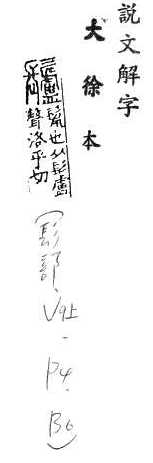 說文解字
大徐本
鬛也从髟盧
聲洛乎切
(髟部、V9上-P4-B6)